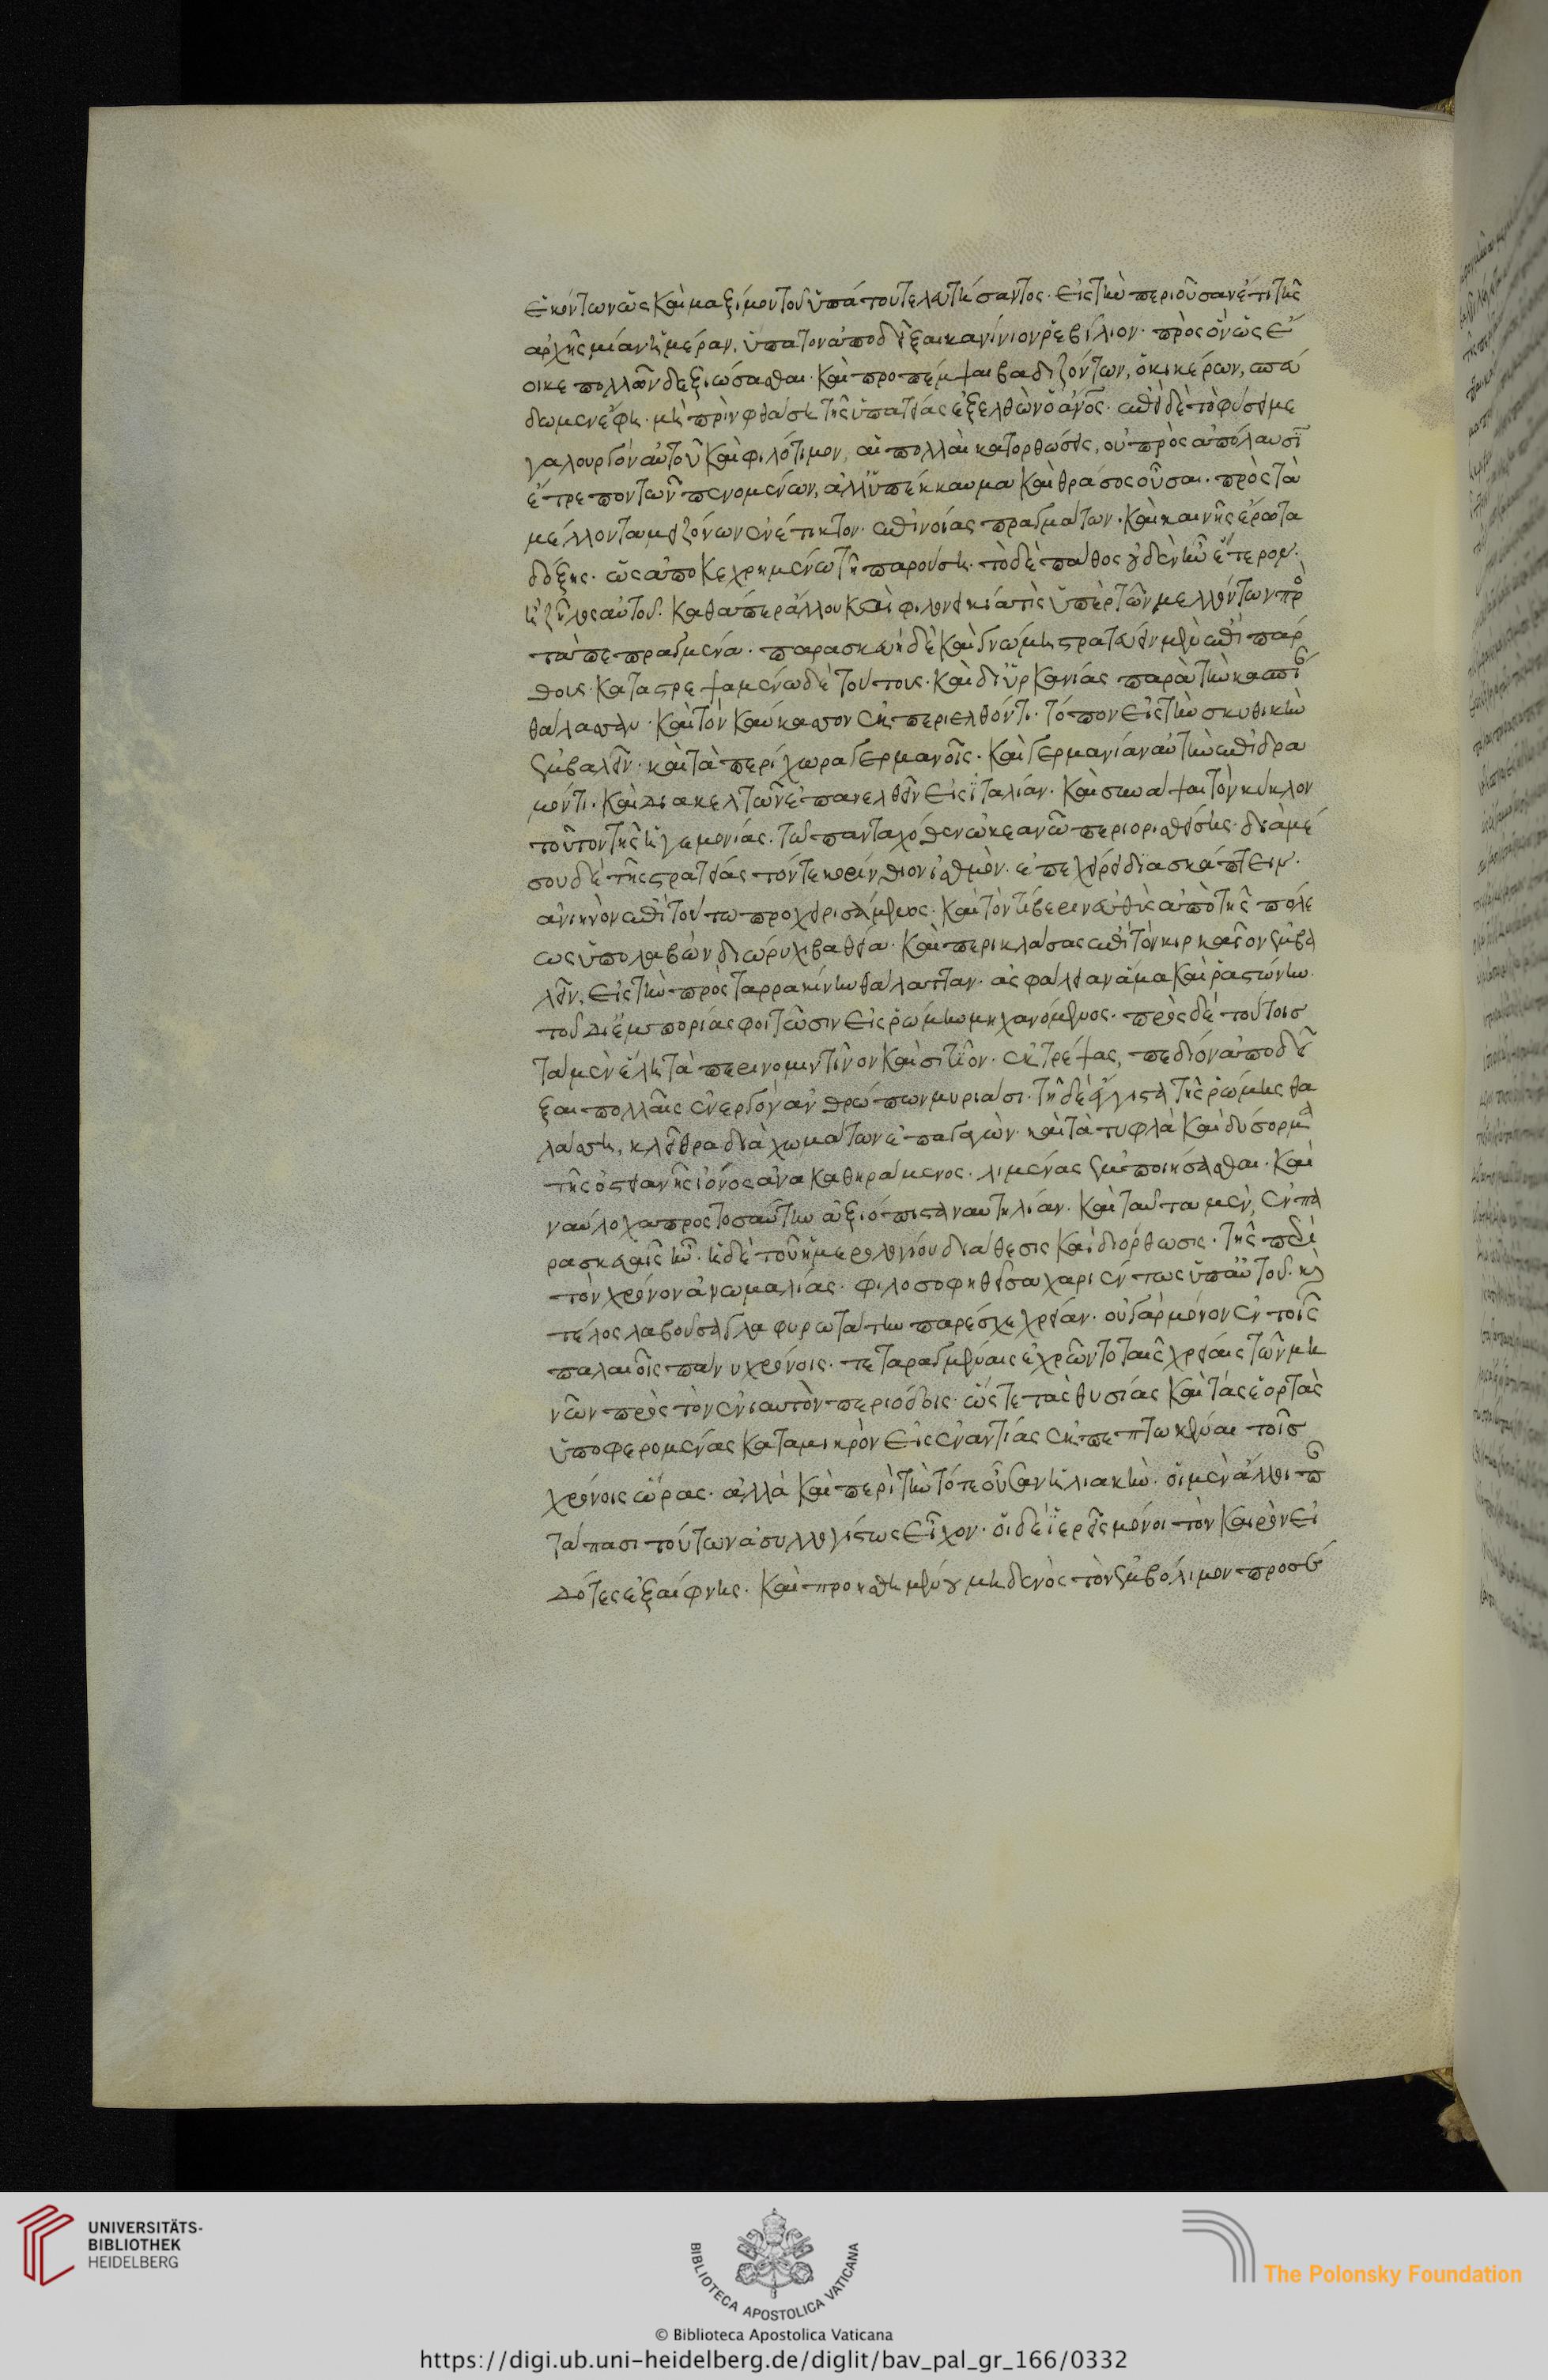 ἑκόντων ὥστε καὶ μαξίμου τοῦ ὑπάτου τελευτήσαντος· εἰς τὴν περιοῦσαν ἔτι τῆς
ἀρχῆς μίαν ἡμέραν, ὕπατον ἀποδεῖξαι κανίνιον ῥεβίλιον· πρὸς ὃν ὡς ἔ
οικε πολλῶν δεξιώσασθαι καὶ προπέμψαι βαδιζόντων, ὁ κικέρων, σπεύ
δωμεν ἔφη· μὴ πρὶν φθάση τῆς ὑπατείας ἐξελθὼν ὁ ἄνος· ἐπεὶ δὲ τὸ φύσει με
γαλουργὸν αὐτοῦ καὶ φιλότιμον, αἱ πολλαὶ κατορθώσεις, οὐ πρὸς ἀπόλαυσιν
ἔτρεπον τῶν πεπονημένων, ἀλλ' ὑπέκκαυμα καὶ θράσος οὖσαι· πρὸς τὰ
μέλλοντα μειζόνων ἐνέτικτον ἐπινοίας πραγμάτων· καὶ καινῆς ἔρωτα
δόξης· ὡς ἀποκεχρημένω τῆ παρούση· τὸ δὲ πάθος οὐδὲν ἦν ἕτερον·
ἢ ζῆλος αὐτοῦ· καθάπερ ἄλλου καὶ φιλονεικία τις ὑπὲρ τῶν μελλόντων πρὸ
τὰ πεπραγμένα· παρασκευὴ δὲ καὶ γνώμη στρατεύειν μὲν ἐπὶ πάρ
θους· καταστρεψαμένω δὲ τούτους· καὶ δι' ὑρκανίας παρὰ τὴν κασπί
θάλασσαν· καὶ τὸν καύκασον ἐκπεριελθόντι· τόπον εἰς τὴν σκυθικὴν
ἐμβαλεῖν· καὶ τὰ περίχωρα γερμανοῖς· καὶ γερμανίαν αὐτὴν ἐπιδρα
μόντι· καὶ διὰ κελτῶν ἐπανελθεῖν εἰς ἰταλίαν· καὶ συνάψαι τὸν κύκλον
τοῦτον τῆς ἡγεμονίας· τῶ πανταχόθεν ὠκεανῶ περιορισθείσης· διὰ μέ
σου δὲ τῆς στρατείας τόν τε κορίνθιον ἰσθμὸν ἐπεχείρει διασκάπτειν·
ἀνιηνὸν ἐπὶ τούτω προχειρισάμενος· καὶ τὸν τίβεριν εὐθὺς ἀπὸ τῆς πόλε
ως ὑπολαβὼν διώρυχι βαθεία· καὶ περικλάσας ἐπὶ τὸν κιρκαῖον ἐμβα
λεῖν, εἰς τὴν πρὸς ταρρακίνη θάλατταν· ἀσφάλειαν ἅμα καὶ ῥαστώνην·
τοῦ δι' ἐμπορίας φοιτῶσιν εἰς ῥώμην μηχανόμενος· πρὸς δὲ τούτοισ
τὰ μὲν ἕλη τὰ περινομεντῖνον καὶ σιτίον· ἐκτρέψας, πεδίον ἀποδεῖ
ξαι πολλαῖς ἐνεργὸν ἀνθρώπων μυριάσι· τῆ δὲ ἔγγιστα τῆς ῥώμης θα
λάσση, κλεῖθρα διὰ χωμάτων ἐπαγαγὼν· καὶ τὰ τυφλὰ καὶ δύσορμα
τῆς ὀστεανῆς ἠιόνος ἀνακαθηράμενος· λιμένας ἐμποιήσασθαι· καὶ
ναύλοχα πρὸς τοσαύτην ἀξιόπιστα ναυτιλίαν· καὶ ταῦτα μὲν, ἐν πα
ρασκευαῖς ἦν· ἡ δὲ τοῦ ἡμερολογίου διάθεσις καὶ διόρθωσις· τῆς περὶ
τὸν χρόνον ἀνωμαλίας· φιλοσοφηθεῖσα χαριέντως ὑπ' αὐτοῦ· καὶ
τέλος λαβοῦσα γλαφυρωτάτην παρέσχε χρείαν· οὐ γὰρ μόνον ἐν τοῖς
παλαιοῖς πάνυ χρόνοις· τεταραγμέναις ἐχρῶντο ταῖς χρείαις τῶν μη
νῶν πρὸς τὸν ἐνιαυτὸν περιόδοις· ὥστε τὰς θυσίας καὶ τὰς ἑορτὰς
ὑποφερομένας κατὰ μικρὸν εἰς ἐναντίας ἐκπεπτωκέναι τοῖσ
χρόνοις ὥρας· ἀλλὰ καὶ περὶ τὴν τότε οὖσαν ἡλιακὴν· οἱ μὲν ἄλλοι π
τάπασι τούτων ἀσυλλογίστως εἶχον· οἱ δὲ ἱερεῖς μόνοι τὸν καιρὸν εἰ
δότες ἐξαίφνης· καὶ προησθημένου μηδενὸς τὸν ἐμβόλιμον προσέ
UNIVERSITÄTS-
BIBLIOTHEK
HEIDELBERG
BIBLIOTECA APOSTOLICA VATICANA
The Polonsky Foundation
© Biblioteca Apostolica Vaticana
https://digi.ub.uni-heidelberg.de/diglit/bav_pal_gr_166/0332